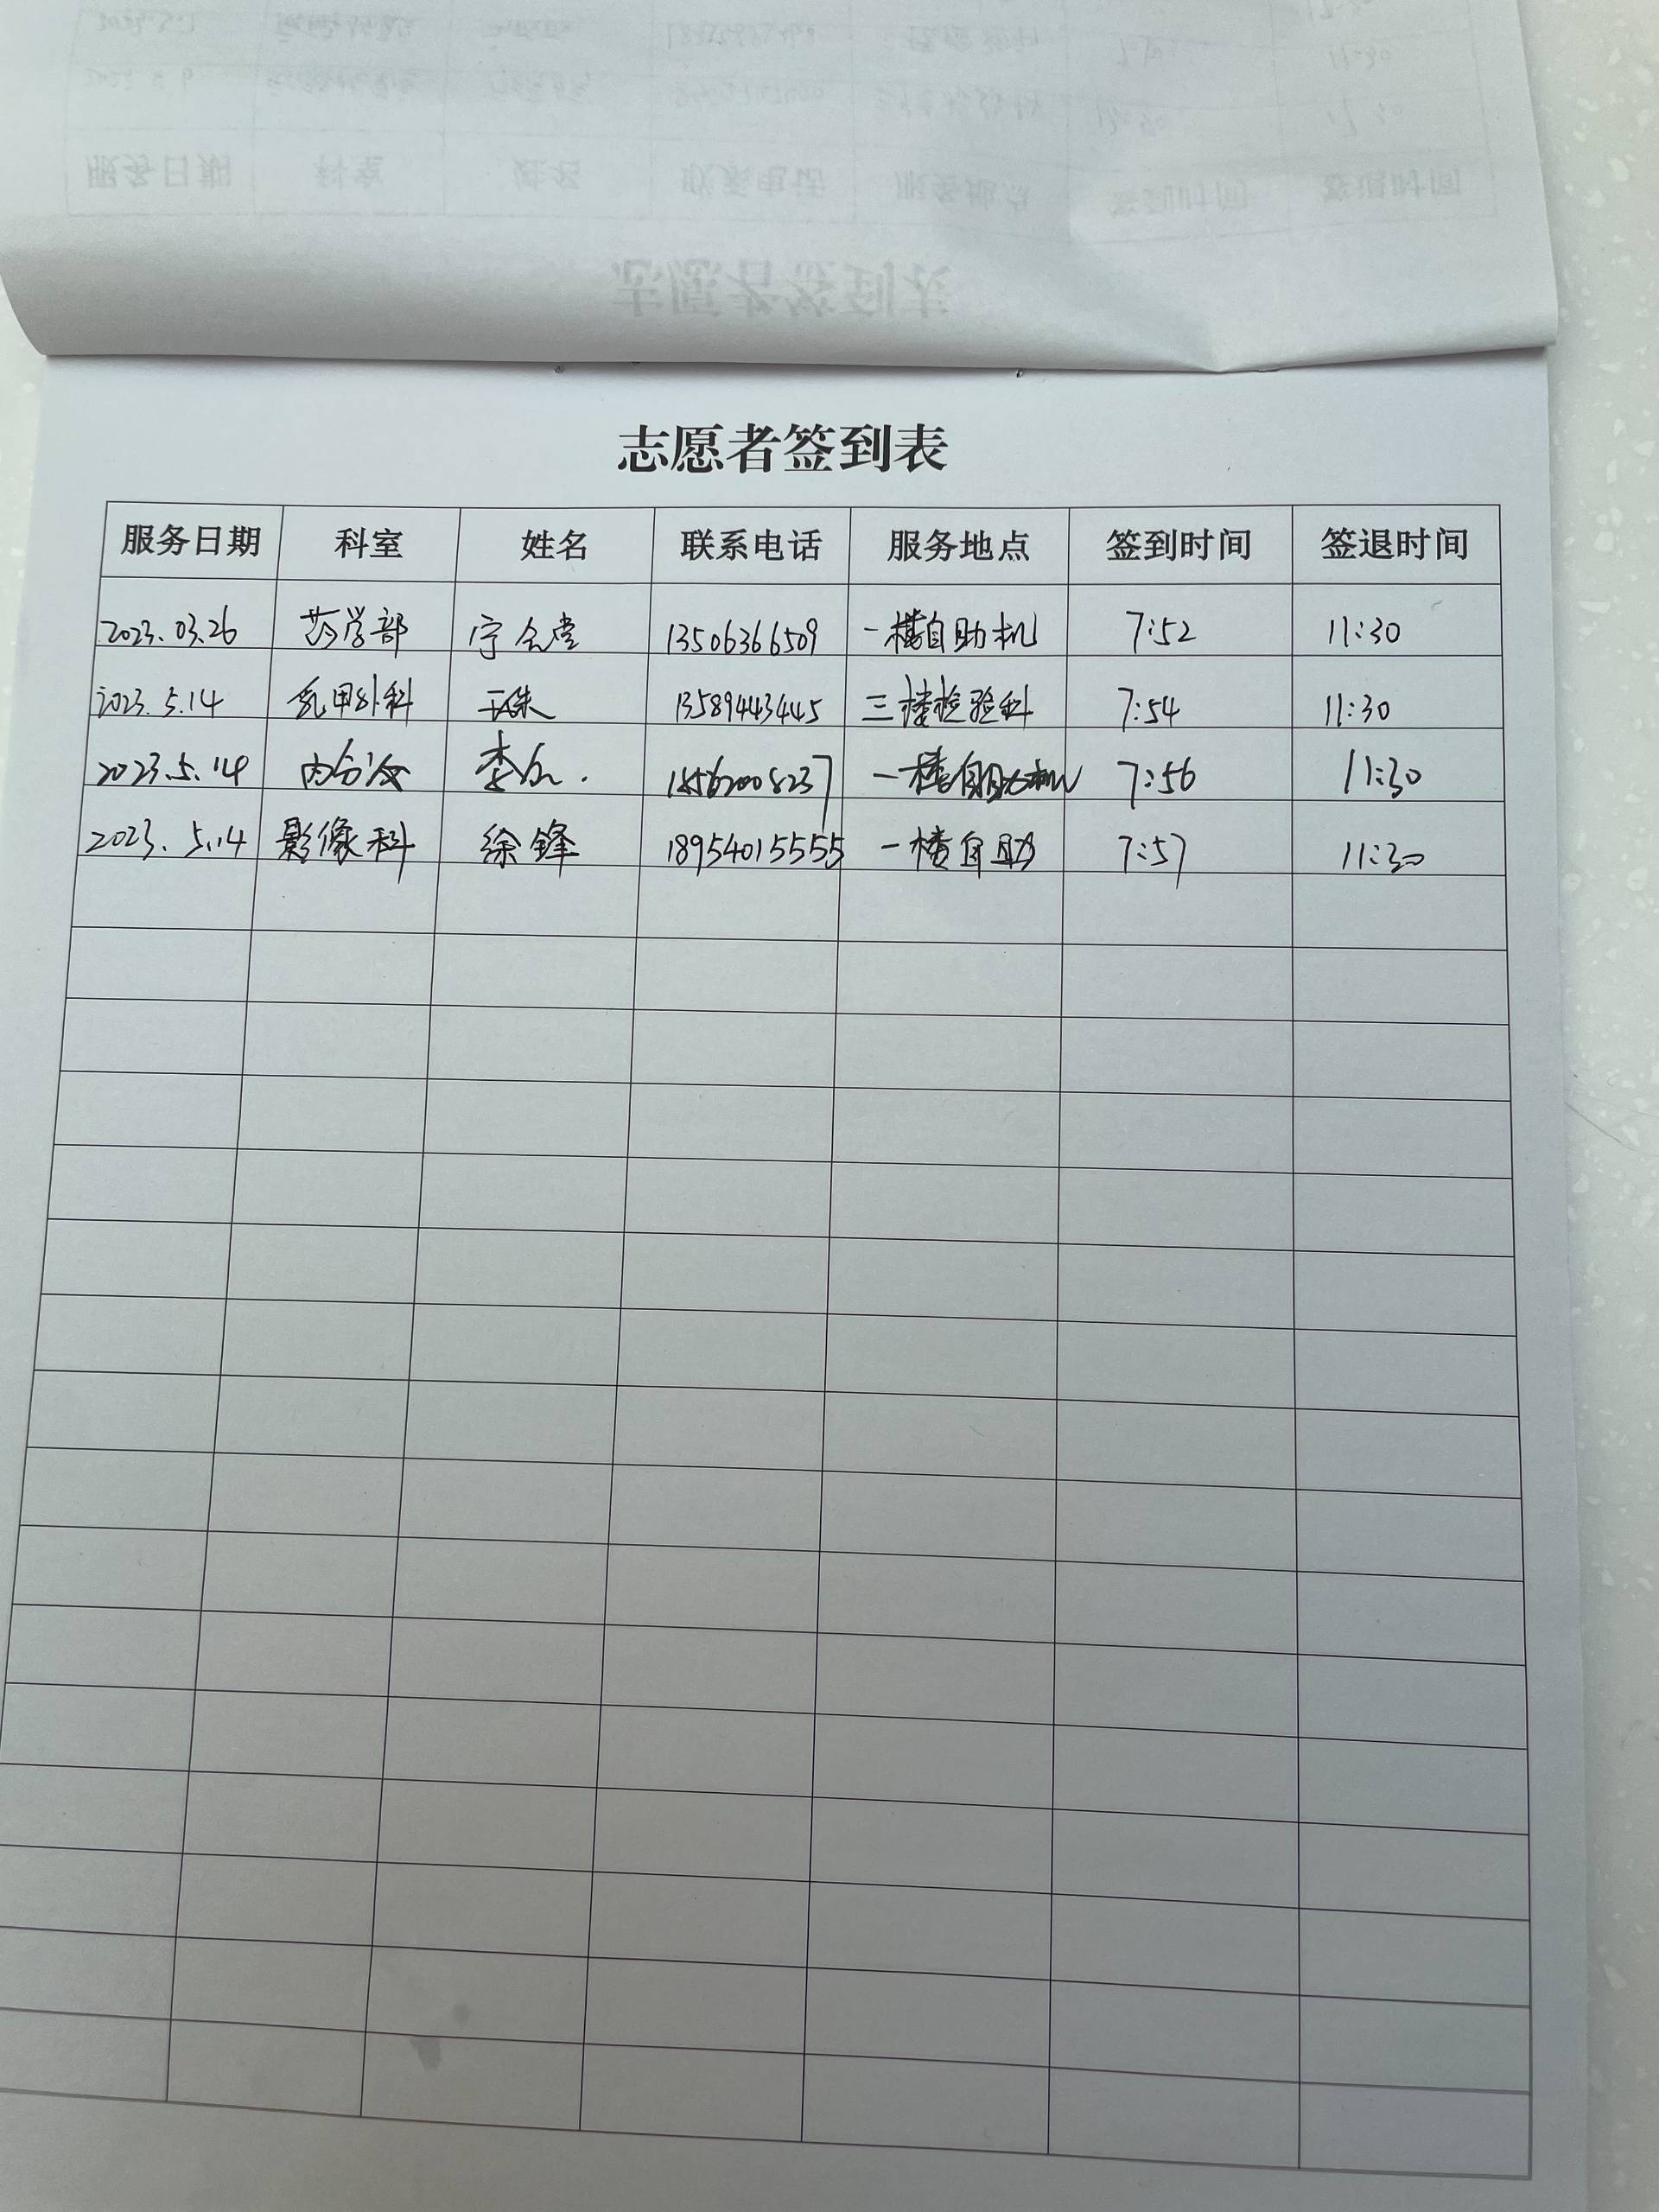 志愿者签到表
服务日期 科室 姓名 联系电话 服务地点 签到时间 签退时间
2023.03.26 药学部 宁 13506366509 一楼自助机 7:52 11:30
2023.5.14 乳甲外科 13589443445 三楼检验科 7:54 11:30
2023.5.14 内分泌 李 一楼自助机 7:56 11:30
2023.5.14 影像科 徐锋 18954015555 一楼自助 7:57 11:30